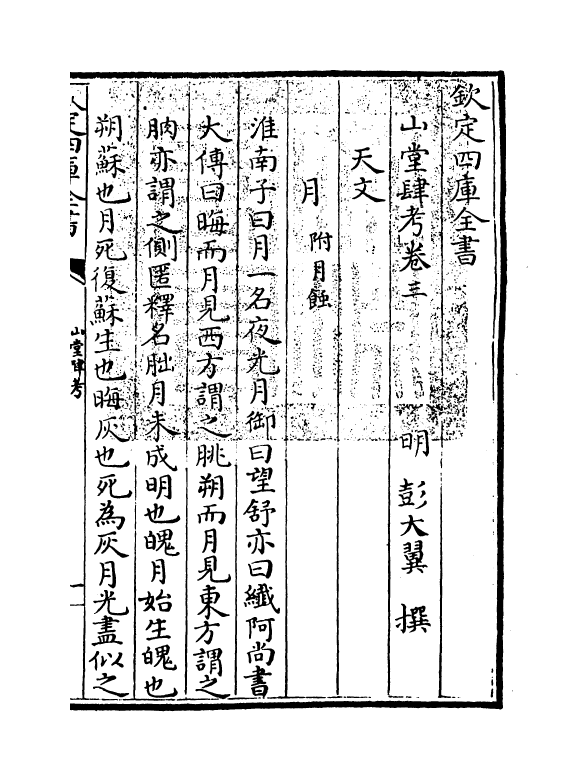 欽定四庫全書
山堂肆考卷三
明 彭大翼 撰
天文
月 附月蝕
淮南子曰月一名夜光月御曰望舒亦曰纖阿尚書
大傳曰晦而月見西方謂之朓朔而月見東方謂之
朒亦謂之側匿釋名朏月未成明也魄月始生魄也
朔蘇也月死復蘇生也晦灰也死為灰月光盡似之
欽定四庫全書
山堂肆考
一